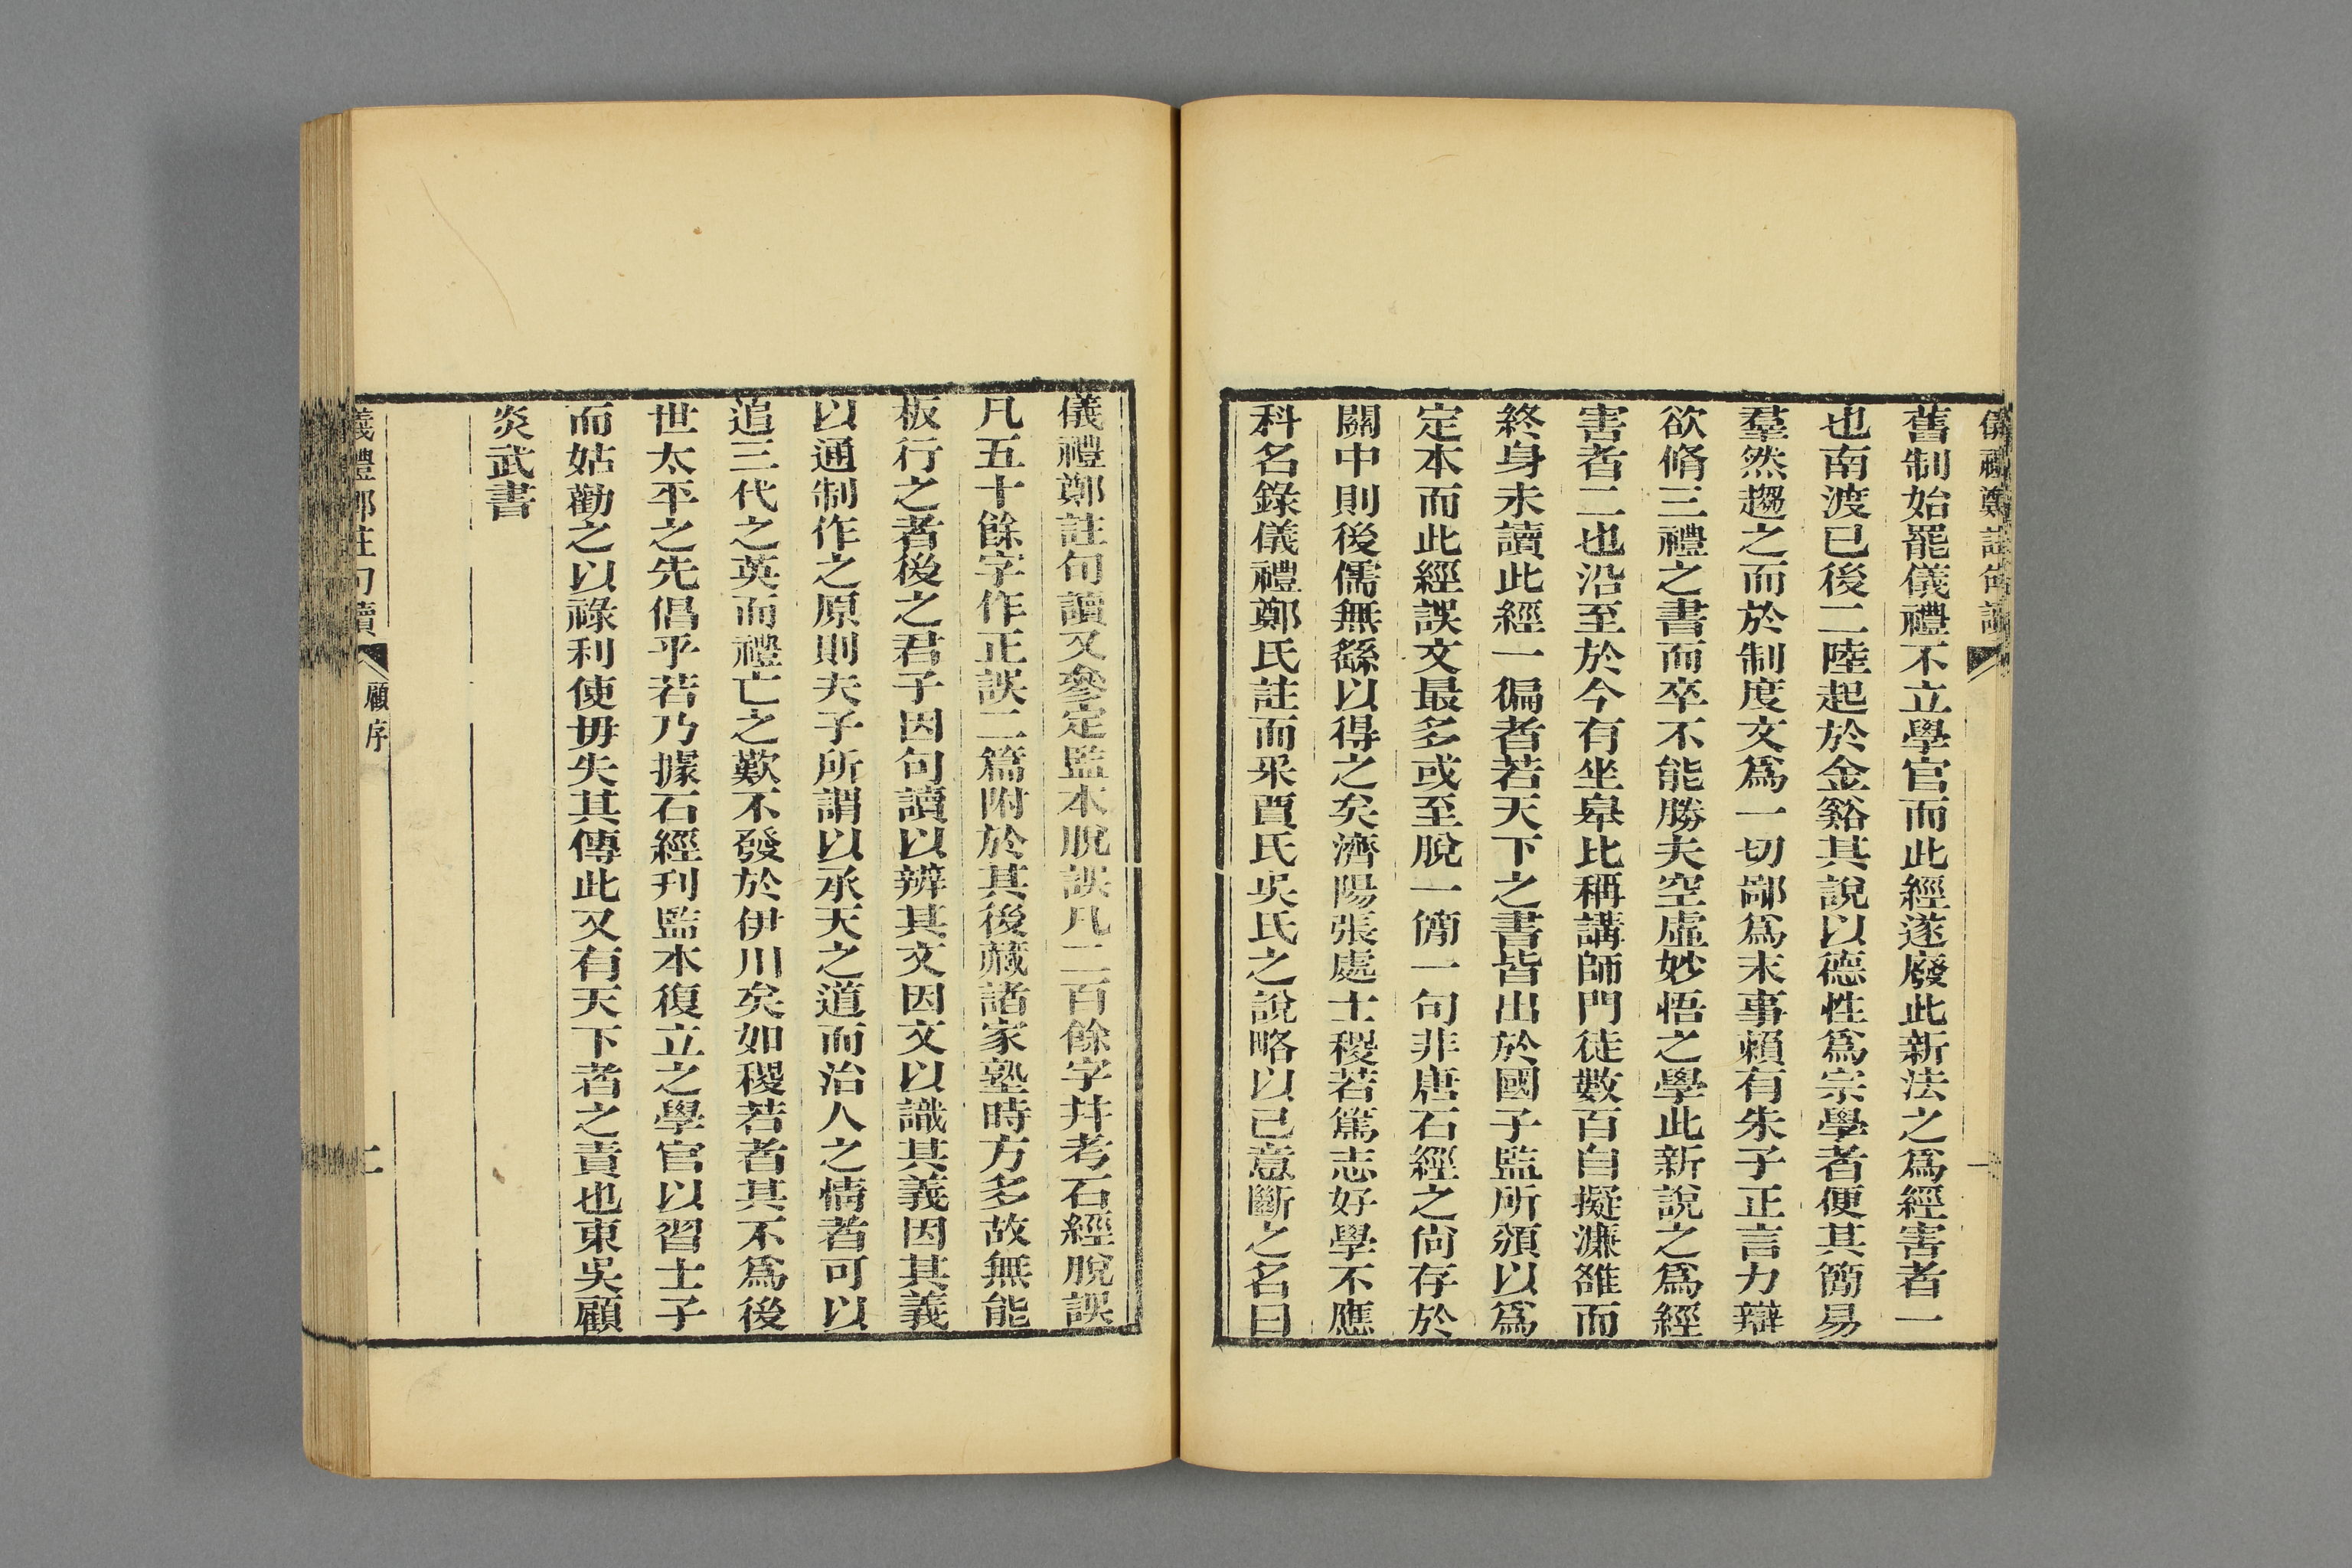 舊制始罷儀禮不立學官而此經遂廢此新法之爲經害者一
也南渡已後二陸起於金谿其說以德性爲宗學者便其簡易
羣然趨之而於制度文爲一切鄙爲末事賴有朱子正言力辯
欲脩三禮之書而卒不能勝夫空虛妙悟之學此新說之爲經
害者二也沿至於今有坐皋比稱講師門徒數百自擬濂雒而
終身未讀此經一徧者若天下之書皆出於國子監所頒以爲
定本而此經誤文最多或至脫一簡一句非唐石經之尙存於
關中則後儒無繇以得之矣濟陽張處士稷若篤志好學不應
科名錄儀禮鄭氏註而采賈氏吳氏之說略以己意斷之名曰
儀禮鄭註句讀又參定監本脫誤凡二百餘字幷考石經脫誤
凡五十餘字作正誤二篇附於其後藏諸家塾時方多故無能
板行之者後之君子因句讀以辨其文因文以識其義因其義
以通制作之原則夫子所謂以承天之道而治人之情者可以
追三代之英而禮亡之歎不發於伊川矣如稷若者其不爲後
世太平之先倡乎若乃據石經刊監本復立之學官以習士子
而姑勸之以祿利使毋失其傳此又有天下者之責也東吳顧
炎武書
儀禮鄭註句讀
顧序
二